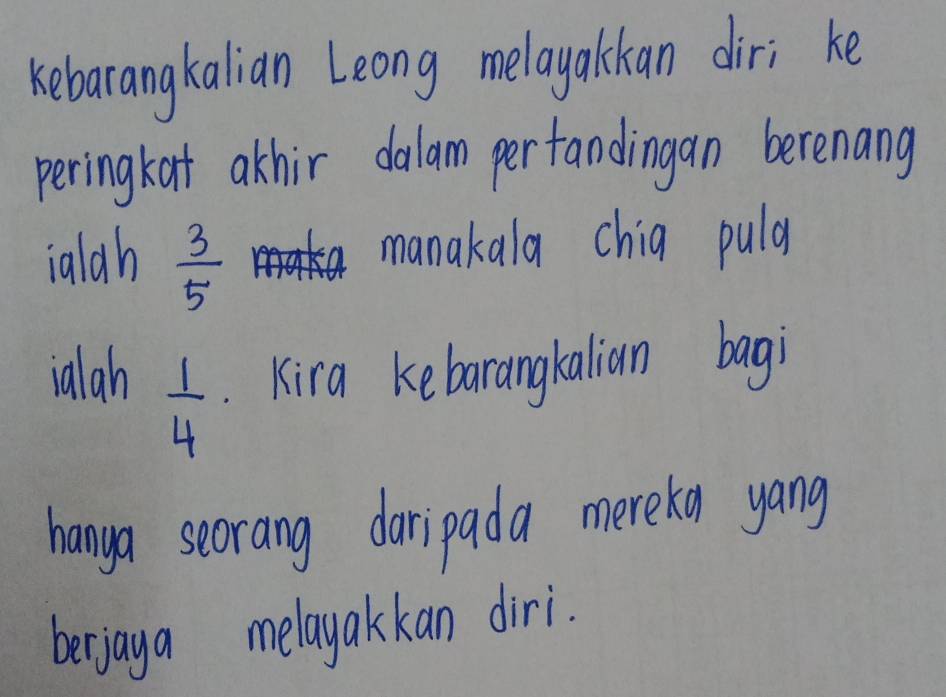 Kebarangkalian Leong melayakkan diri ke
peringkat akhir dalam pertandingan berenang
ialah 3/5 maka manakala Chia pula
ialah 1/4. Kira kebarangkalian bagi
hanya seorang daripada mereka yang
berjaya melayakkan diri.